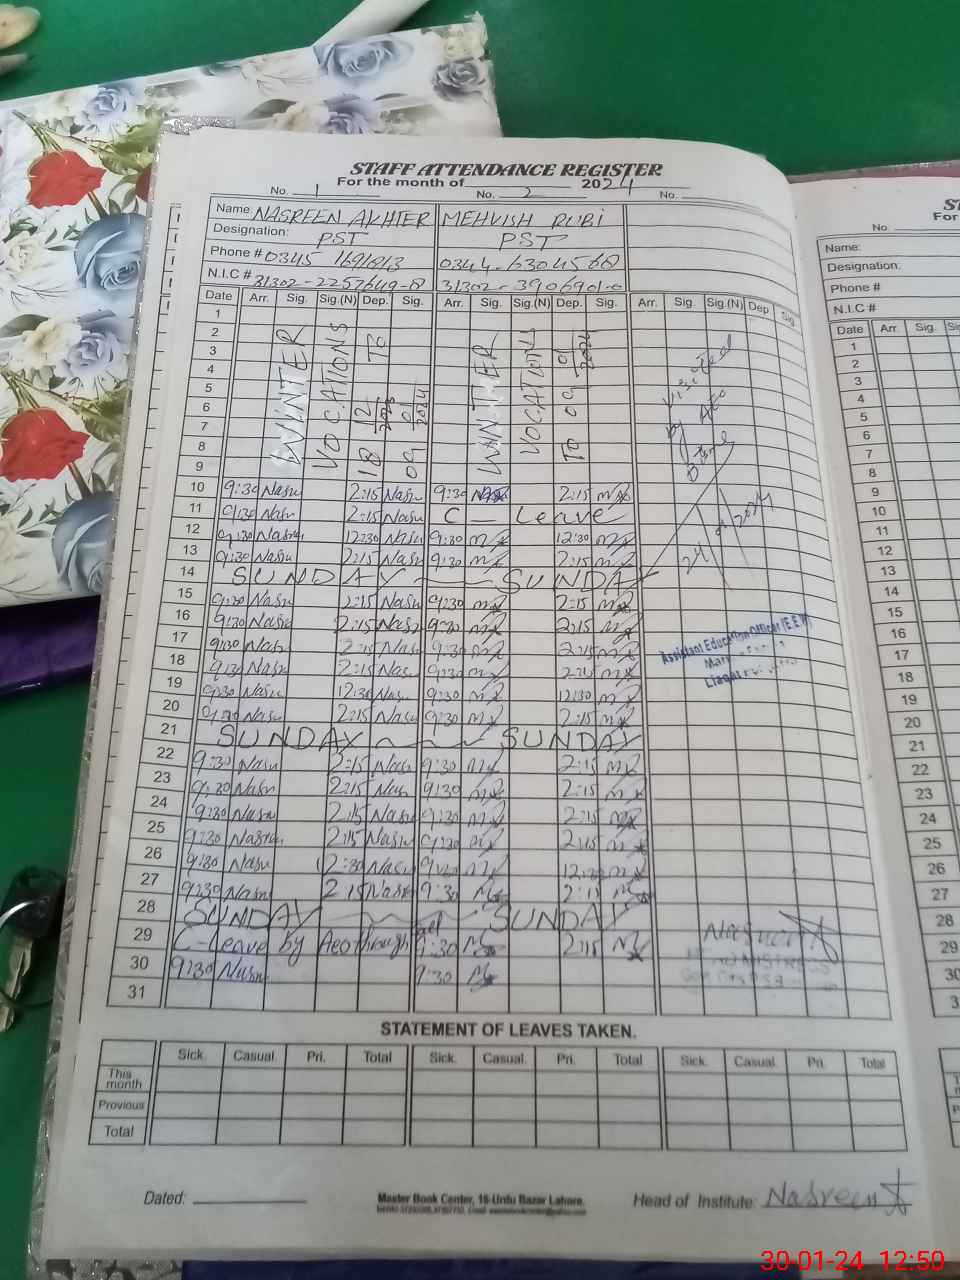 STAFF ATTENDANCE REGISTER
For the month of 2024
No. 1 No. 2 No.
Name NASREEN AKHTER MEHVISH RUBI
Designation: PST PST
Phone # 0345 1691813 0344-6304568
N.I.C # 31302-2257649-8 31302-3906901-0
Date Arr. Sig. Sig.(N) Dep. Sig. Arr. Sig. Sig.(N) Dep. Sig. Arr. Sig. Sig.(N) Dep Sig.
WINTER VOCATIONS 18 12 2023 TO 09 01 2024
WINTER VOCATIONS TO 09 01 2024
Visited by AEO
1
2
3
4
5
6
7
8
9
10 9:30 Nasu 2:15 Nasu 9:30 2:15
11 9:30 Nasu 2:15 Nasu C — Leave
12 9:30 Nasu 12:30 Nasu 9:30 12:30
13 9:30 Nasu 2:15 Nasu 9:30 2:15
14 SUNDAY SUNDAY
15 9:30 Nasu 2:15 Nasu 9:30 2:15
16 9:30 Nasu 2:15 Nasu 9:30 2:15
17 9:30 Nasu 2:15 Nasu 9:30 2:15
18 9:30 Nasu 2:15 Nasu 9:30 2:15
19 9:30 Nasu 12:30 Nasu 9:30 12:30
20 9:30 Nasu 2:15 Nasu 9:30 2:15
21 SUNDAY SUNDAY
22 9:30 Nasu 2:15 Nasu 9:30 2:15
23 9:30 Nasu 2:15 Nasu 9:30 2:15
24 9:30 Nasu 2:15 Nasu 9:30 2:15
25 9:30 Nasu 2:15 Nasu 9:30 2:15
26 9:30 Nasu 12:30 Nasu 9:30 12:30
27 9:30 Nasu 2:15 Nasu 9:30 2:15
28 SUNDAY SUNDAY
29 C-Leave by Aeo through 9:30 2:15
30 9:30 Nasu 9:30
31
Assistant Education Officer (E.E.W)
STATEMENT OF LEAVES TAKEN.
Sick. Casual. Pri. Total Sick. Casual. Pri. Total Sick. Casual. Pri. Total
This month
Provious
Total
Dated:
Master Book Center, 16-Urdu Bazar Lahore.
Head of Institute: Nasreen A
No.
Name:
Designation:
Phone #
N.I.C #
Date Arr. Sig.
1
2
3
4
5
6
7
8
9
10
11
12
13
14
15
16
17
18
19
20
21
22
23
24
25
26
27
28
29
30
30-01-24 12:50